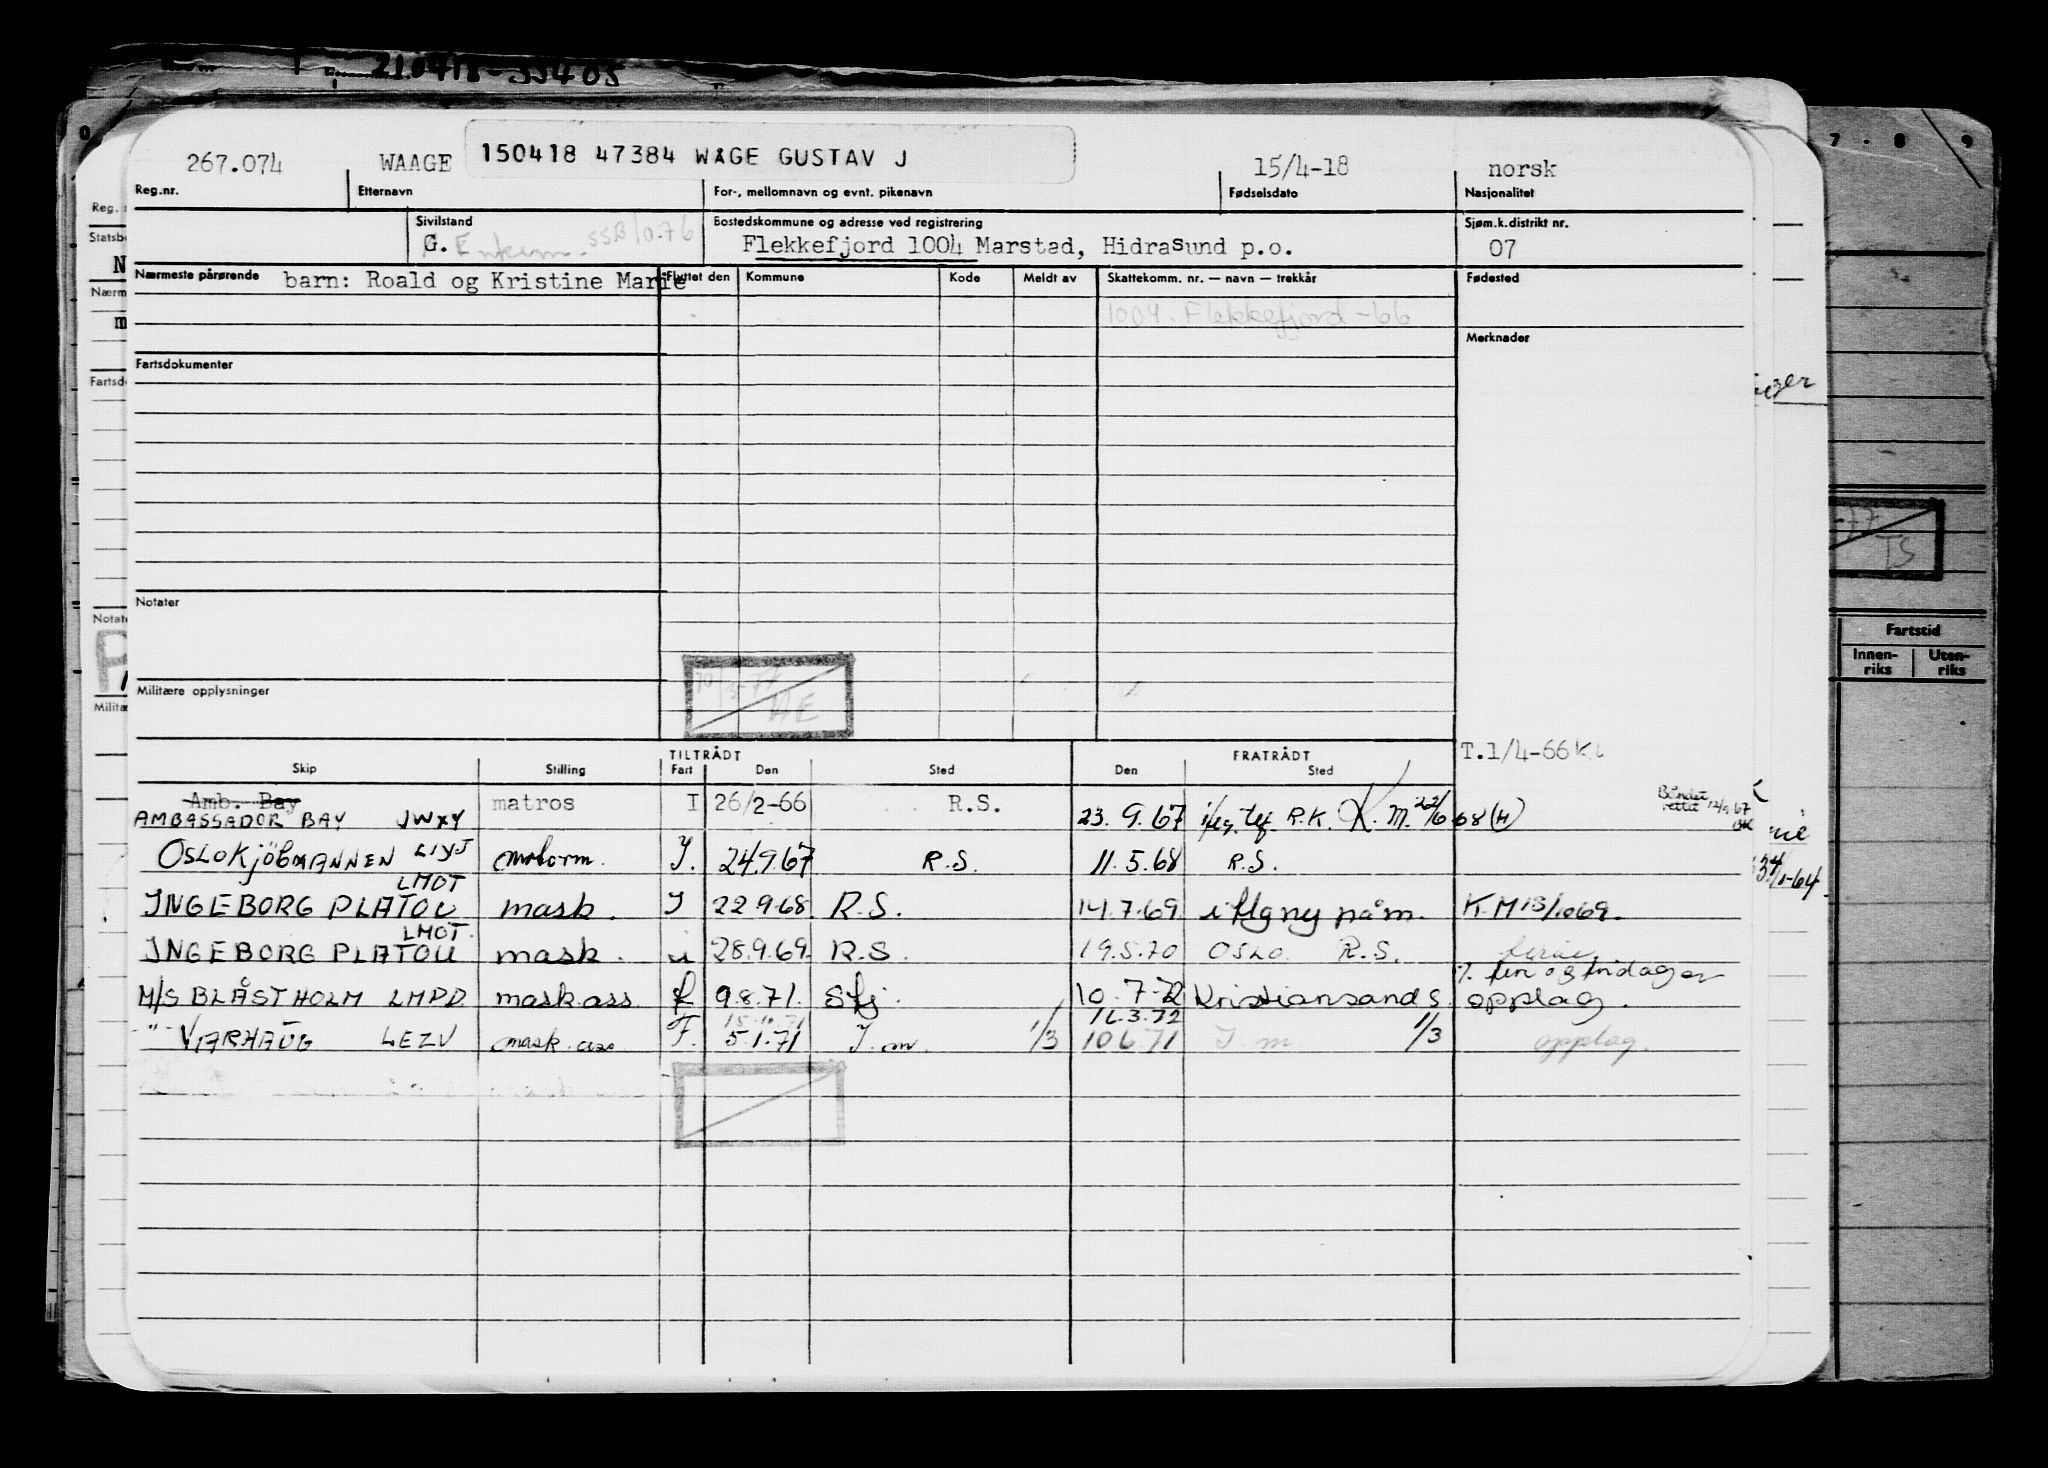 210418-35405
267.074 WAAGE 150418 47384 WÅGE GUSTAV J 15/4-18 norsk
Reg.nr. Etternavn For-, mellomnavn og evnt. pikenavn Fødselsdato Nasjonalitet
Sivilstand Bostedskommune og adresse ved registrering Sjøm.k.distrikt nr.
G. Enkem. SSB/0.76 Flekkefjord 1004 Marstad, Hidrasund p.o. 07
Nærmeste pårørende barn: Roald og Kristine Marie Flyttet den Kommune Kode Meldt av Skattekomm. nr. — navn — trekkår Fødested
1004. Flekkefjord -66
Merknader
Fartsdokumenter
Notater
Militære opplysninger
TILTRÅDT FRATRÅDT T.1/4-66
Skip Stilling Fart Den Sted Den Sted
Amb. Bay matros I 26/2-66 R.S.
AMBASSADOR BAY JWXY 23.9.67 R.K. K.M. 22/6 68 (H)
OSLOKJÖBMANNEN LIYJ motorm. I. 24.9.67 R.S. 11.5.68 R.S.
LMOT
INGEBORG PLATOU mask. I 22.9.68 R.S. 14.7.69 K.M 13/10 69.
LMOT.
INGEBORG PLATOU mask. i 28.9.69 R.S. 19.5.70 OSLO R.S. ferie
M/S BLÅSTHOLM LMPD mask.ass f 9.8.71. Sfj. 10.7-72 Kristiansand S. opplag.
15.10.71 16.3.72
-"- VARHAUG LEZV mask.ass F. 5.1.71 I.m 1/3 10.6.71 I.m 1/3 opplag.
7 · 8 9
Fartstid
Innen-riks Uten-riks
TS